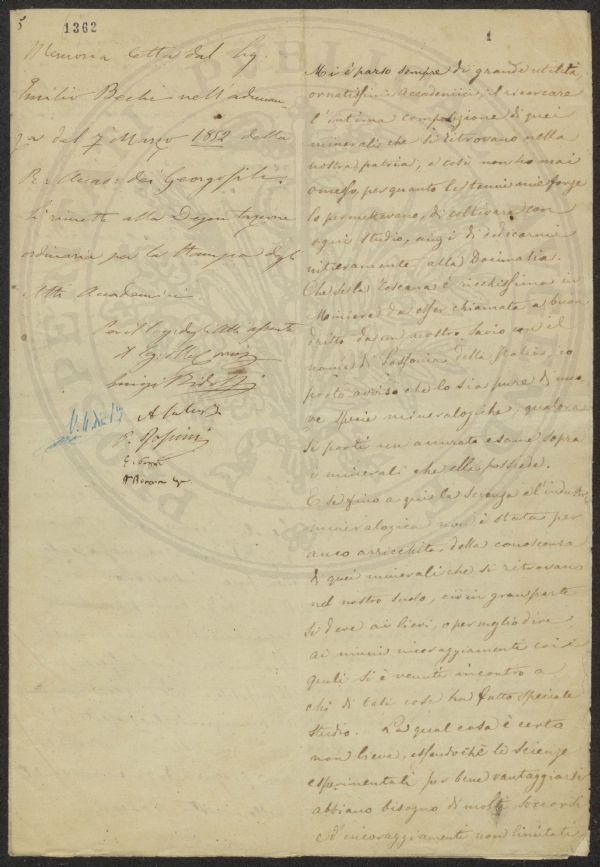 5
1362
1
Memoria letta dal Sig.
Emilio Bechi nell'adunan-
za del 7 Marzo 1852 della
R. Accad. dei Georgofili.
Si rimette alla Deputazione
ordinaria per la Stampa degli
Atti Accademici
Luigi Ridolfi
Mi è parso sempre di grande utilità,
ornatissimi Accademici, il ricercare
l'intima composizione di quei
minerali, che si ritrovano nella
nostra patria, e così non ho mai
omesso, per quanto le tenui mie forze
lo permettevano, di coltivare con
ogni studio, anzi di dedicarmi
intieramente alla Docimasia.
Che se la Toscana è ricchissima in
Miniere da esser chiamata a buon
dritto da un nostro Savio con il
nome di Sassonia della Italia, io
porto avviso che lo sia pure di nuo-
ve specie mineralogiche, qualora
si porti un accurato esame sopra
i minerali che ella possiede.
E se fino a qui la scienza e l'industria
mineralogica non è stata per
anco arricchita della conoscenza
di quei minerali che si ritrovano
nel nostro suolo, ciò in gran parte
si deve ai lievi, o per meglio dire
ai niuni incoraggiamenti coi
quali si è venuti incontro a
chi di tali cose ha fatto speciale
studio. La qual cosa è certo
non lieve, essendochè le scienze
esperimentali per bene vantaggiarsi
abbiano bisogno di molti soccorsi
e d'incoraggiamenti non limitati